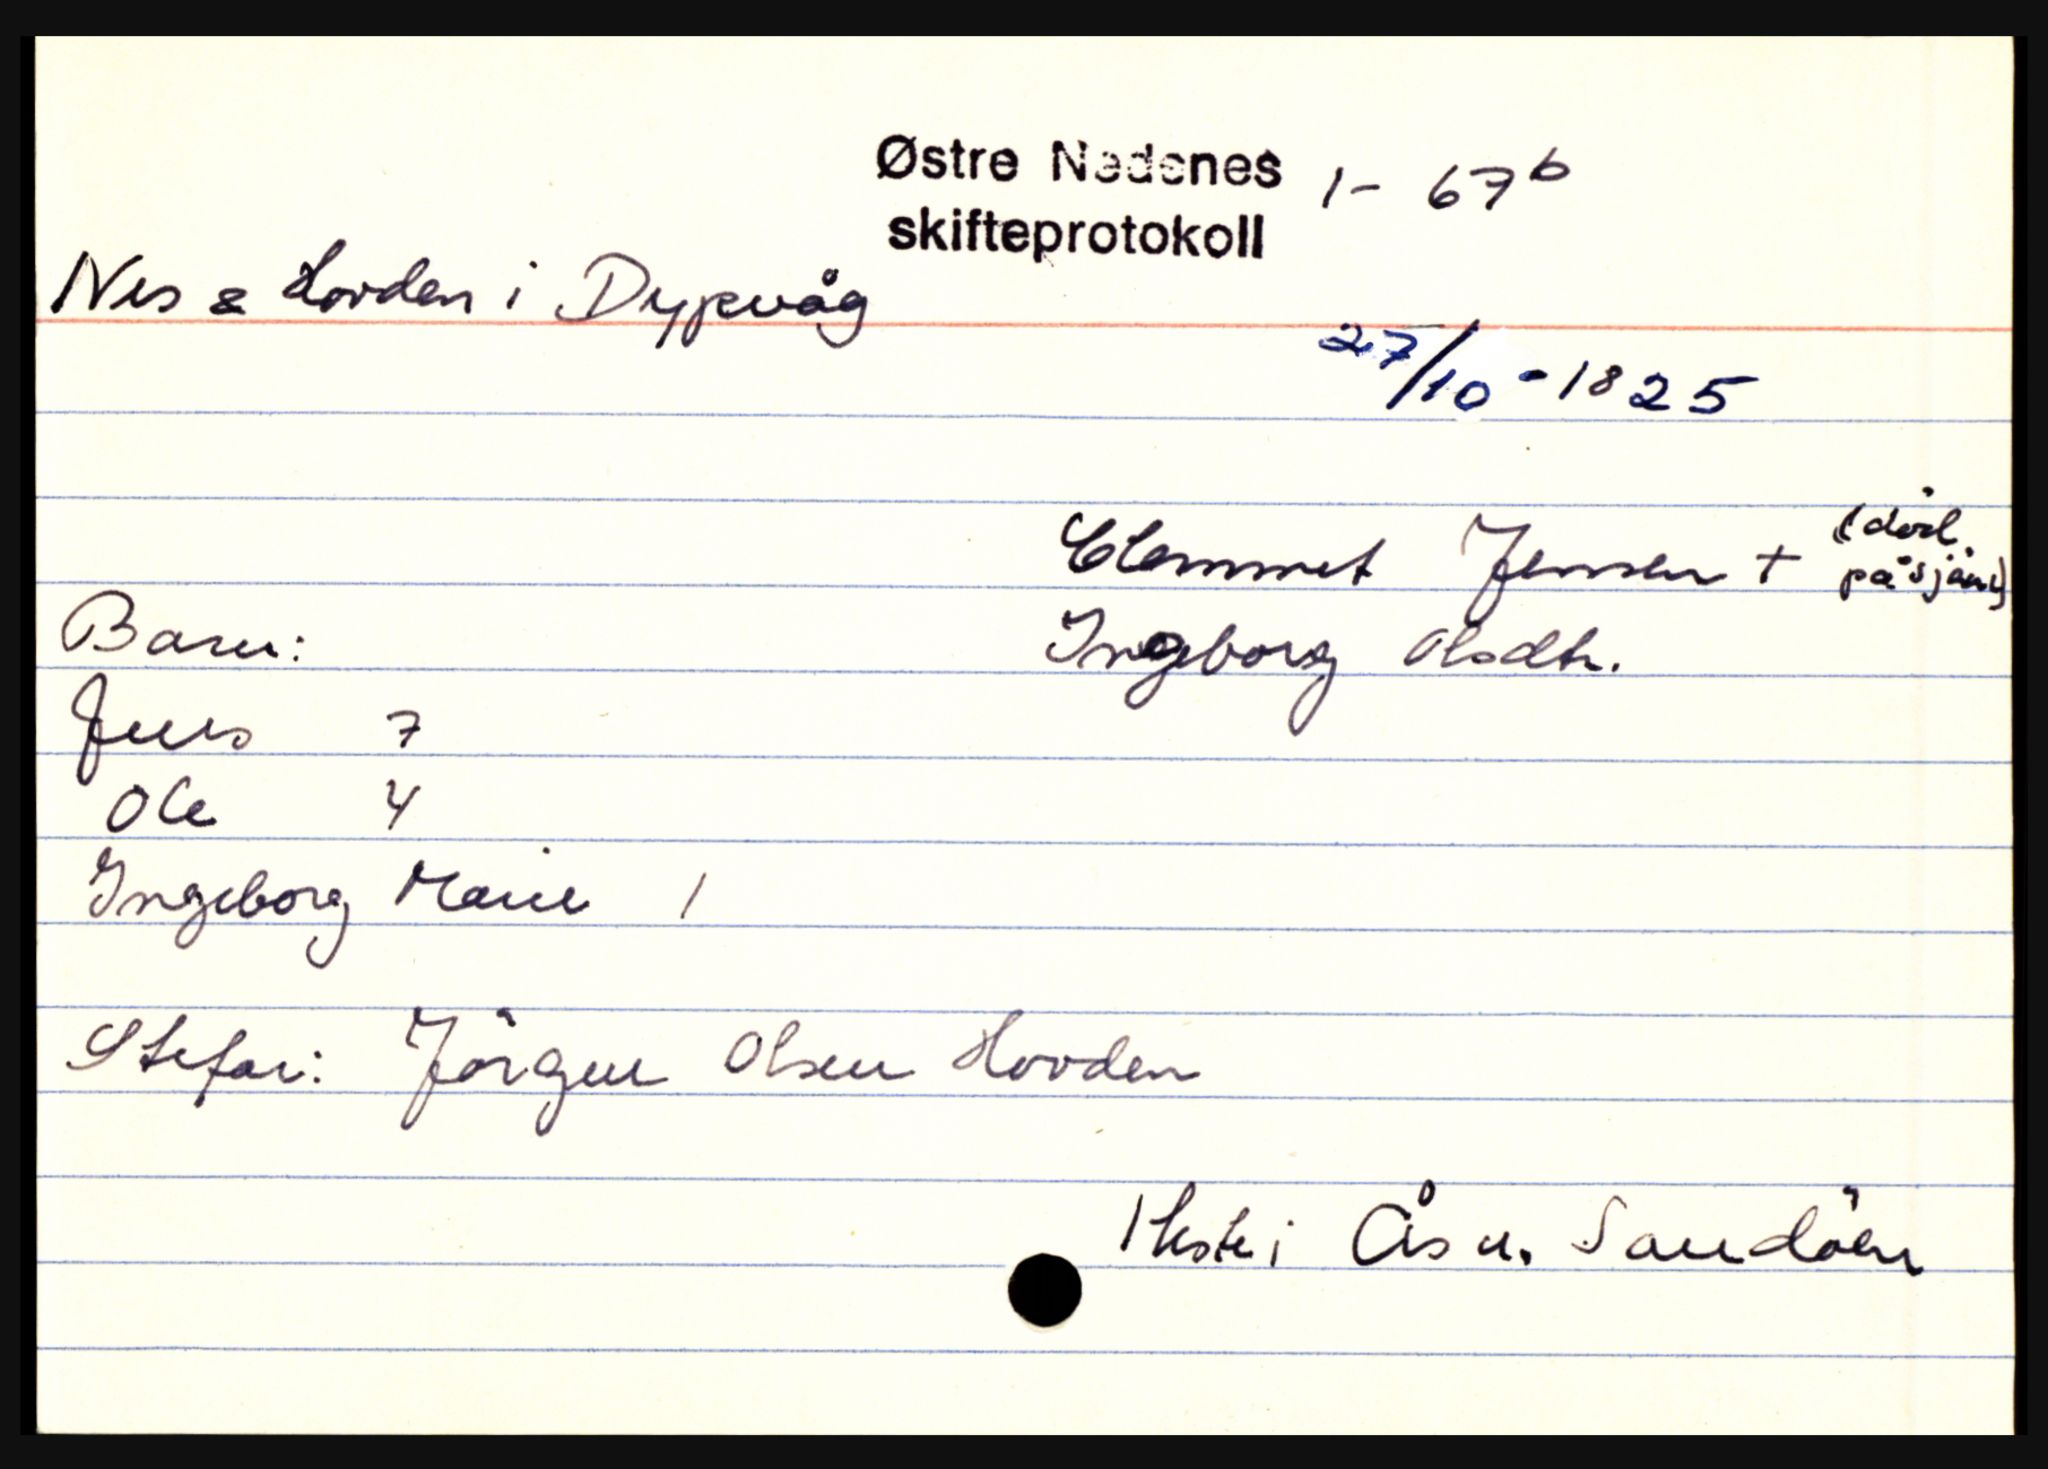 Østre Nedenes 1- 67b
skifteprotokoll
Nes & Hovden i Dypvåg
27/10-1825
Clemmet Jensen + (död
på sjöen)
Barn: Ingeborg Olsdtr.
Jens 7
Ole 4
Ingeborg Marie 1
Stefar: Jörgen Olsen Hovden
i Ås u. Sandöen